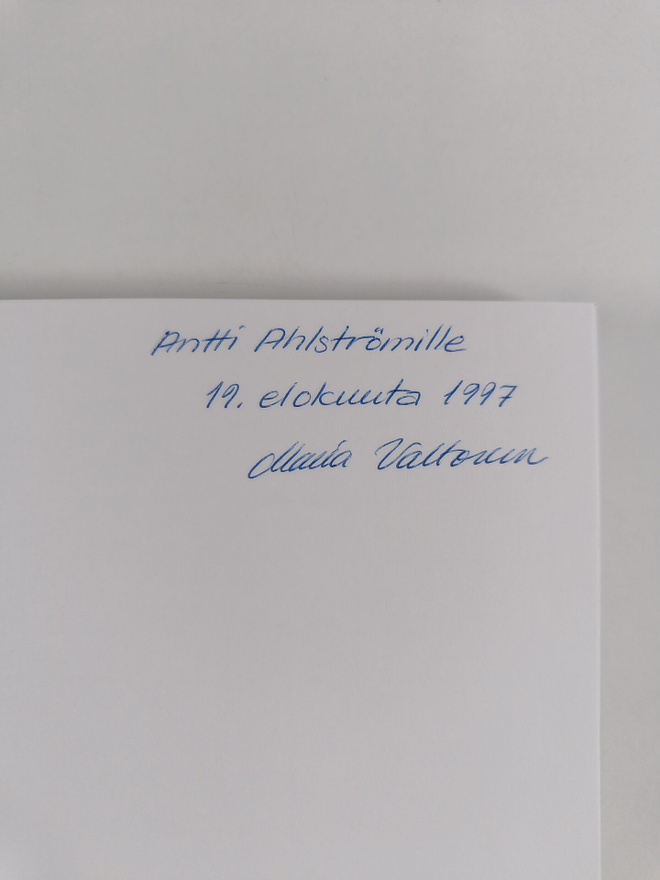 Antti Ahlströmille
19. elokuuta 1997
Maria Valtonen